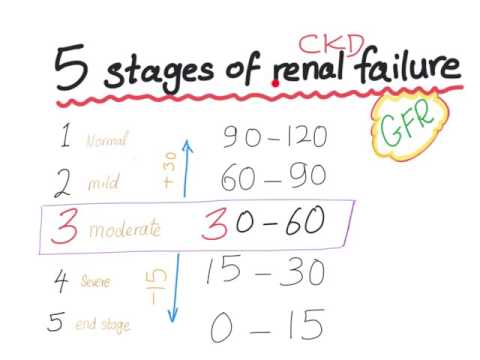 CKD
5 stages of renal failure
GFR
1 Normal 90-120
+30
2 mild 60-90
3 moderate 30-60
4 Severe 15-30
-15
5 end stage 0-15